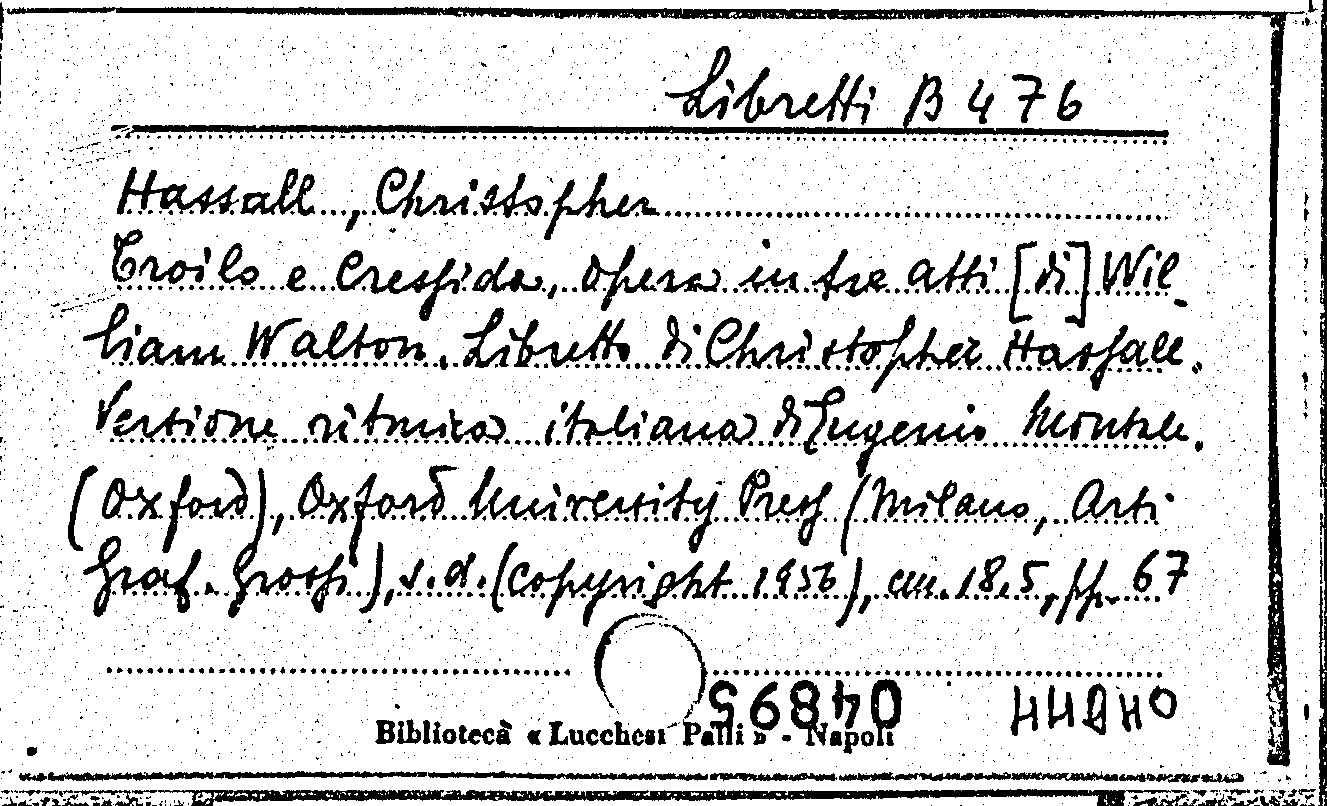 Libretti B 476
Hassall, Christopher
Troilo e Cressida, opera in tre atti [di] Wil-
liam Walton. Libretto di Christopher Hassall.
Versione ritmica italiana di Eugenio Montale.
(Oxford), Oxford University Press (Milano, Arti
Graf. Grossi), s.d. (copyright 1956), cm. 18.5, pp. 67
04895
Biblioteca « Lucchesi Palli » - Napoli